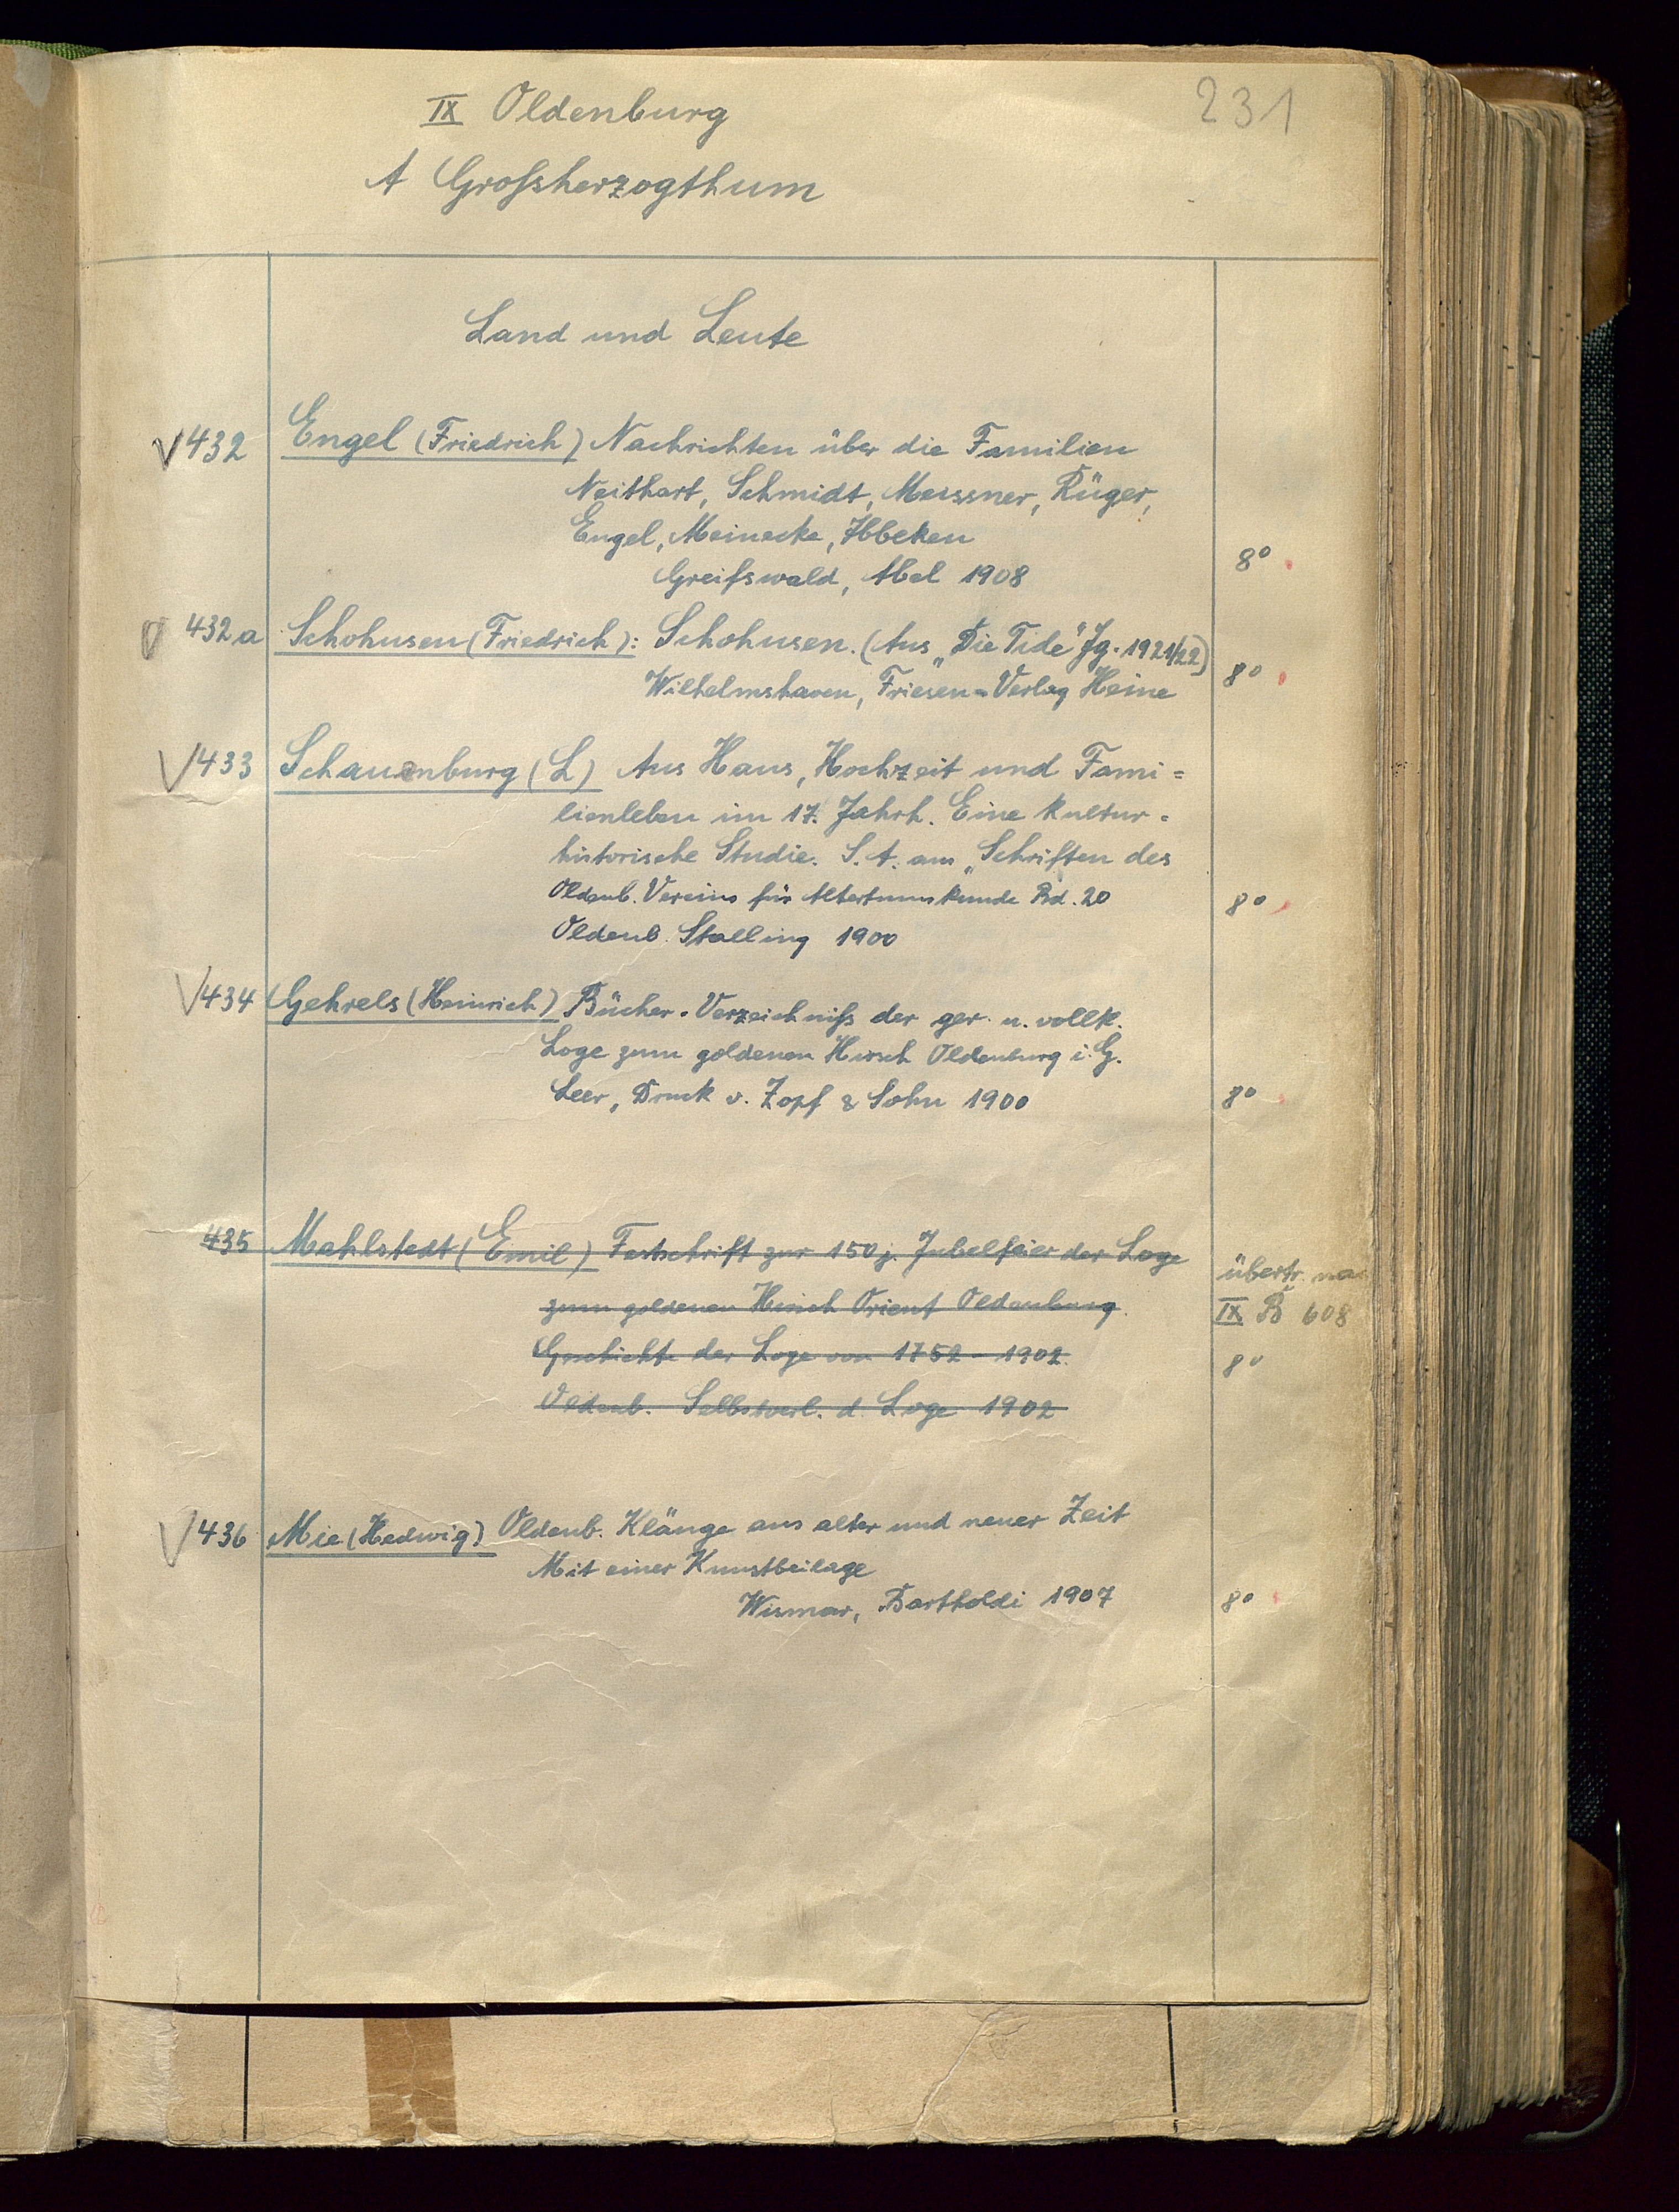 231
IX Oldenburg
A Großherzogthum
Land und Leute
432 Engel (Friedrich) Nachrichten über die Familien
Neithart, Schmidt, Meissner, Rüger,
Engel, Meinecke, Ibbeken
Greifswald, Abel 1908 8°
432a Schohusen (Friedrich): Schohusen. (Aus „Die Tide" Jg. 1921/22)
Wilhelmshaven, Friesen-Verlag Heine 8°
433 Schauenburg (L) Aus Haus, Hochzeit und Fami=
lienleben im 17. Jahrh. Eine kultur-
historische Studie. S. A. aus „Schriften des
Oldenb. Vereins für Altertumskunde Bd. 20 8°
Oldenb. Stalling 1900
434 Gehrels (Heinrich) Bücher-Verzeichniß der ger. u. vollk.
Loge zum goldenen Hirsch Oldenburg i. G.
Leer, Druck v. Zopf & Sohn 1900 8°
435 Mahlstedt (Emil) Festschrift zur 150 j. Jubelfeier der Loge
zum goldenen Hirsch Orient Oldenburg.
Geschichte der Loge von 1752-1902.
Oldenb. Selbstverl. d. Loge 1902
übertr.
IX B 608
8°
436 Mie (Hedwig) Oldenb. Klänge aus alter und neuer Zeit
Mit einer Kunstbeilage
Wismar, Bartholdi 1907 8°